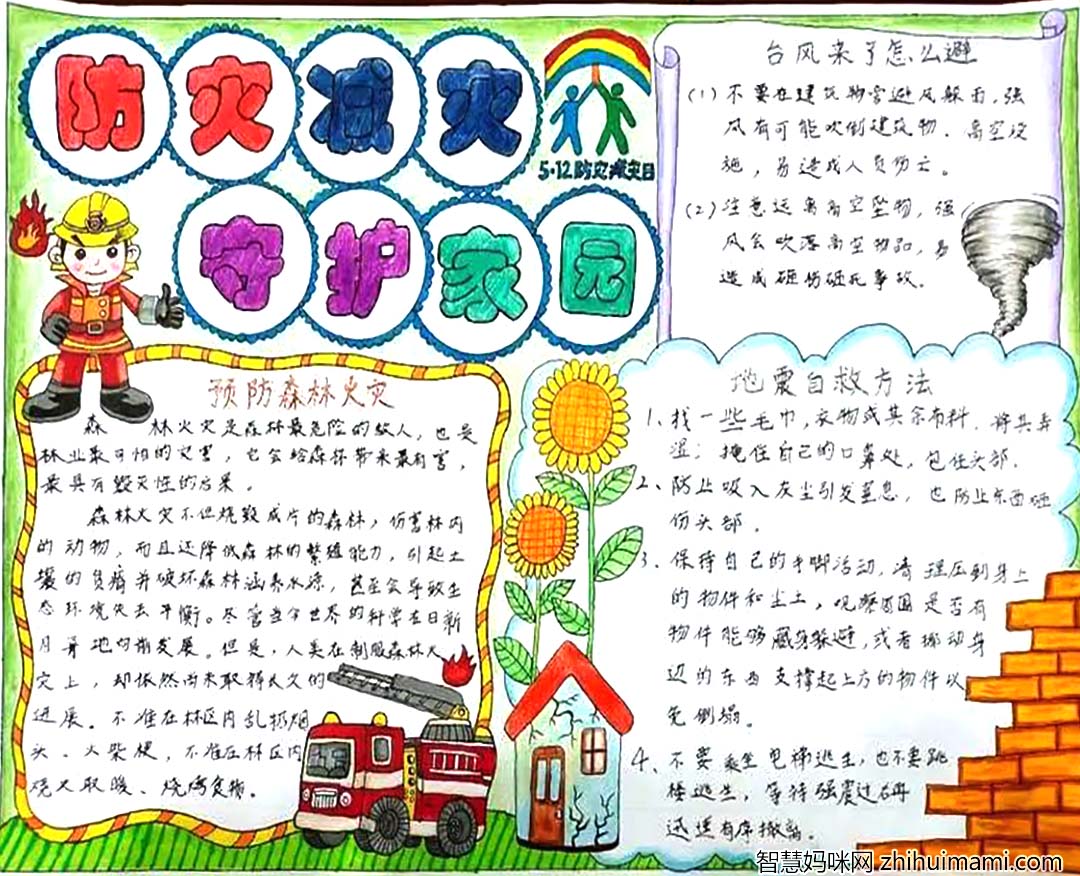 防灾减灾
守护家园
5·12防灾减灾日
台风来了怎么避
(1)不要在建筑物旁避风躲雨,强
风有可能吹倒建筑物、高空设
施,易造成人员伤亡。
(2)注意远离高空坠物,强
风会吹落高空物品,易
造成砸伤砸死事故。
预防森林火灾
森 林火灾是森林最危险的敌人,也是
林业最可怕的灾害,它会给森林带来最有害,
最具有毁灭性的后果。
森林火灾不但烧毁成片的森林,伤害林内
的动物,而且还降低森林的繁殖能力,引起土
壤的贫瘠并破坏森林涵养水源,甚至会导致生
态环境失去平衡。尽管当今世界的科学在日新
月异地向前发展。但是,人类在制服森林火
灾上,却依然尚未取得长久的
进展。不准在林区内乱扔烟
头、火柴梗,不准在林区内
烧火取暖、烧烤食物。
地震自救方法
1、找一些毛巾,衣物或其余布料,将其弄
湿;掩住自己的口鼻处,包住头部.
2、防止吸入灰尘引发窒息,也防止东西砸
伤头部。
3、保持自己的手脚活动,清理压到身上
的物件和尘土,观察周围是否有
物件能够藏身躲避,或者挪动身
边的东西支撑起上方的物件以
免倒塌。
4、不要乘坐电梯逃生,也不要跳
楼逃生,等待强震过后再
迅速有序撤离。
智慧妈咪网 zhihuimami.com